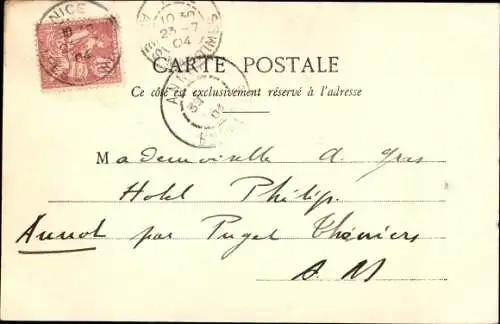 NICE
10 30
23 - 7
04
CARTE POSTALE
Ce côté est exclusivement réservé à l'adresse
Mademoiselle A. Gras
Hotel Philip
Annot par Puget Théniers
A. M